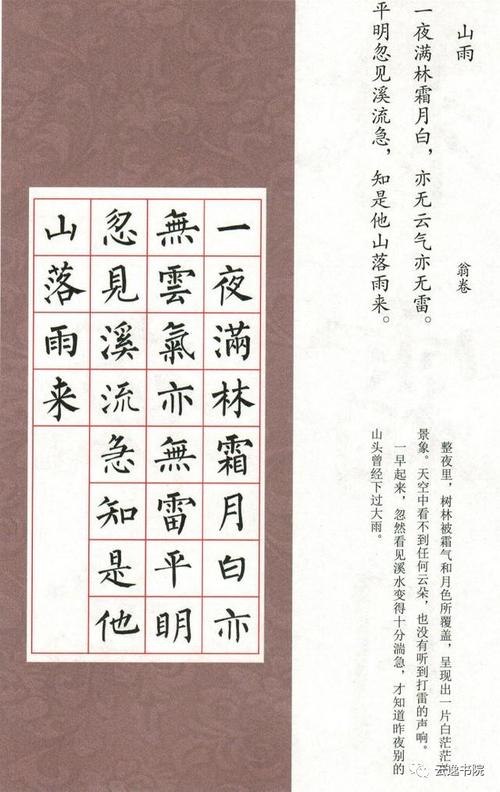 山雨
翁卷
一夜满林霜月白，亦无云气亦无雷。
平明忽见溪流急，知是他山落雨来。
整夜里，树林被霜气和月色所覆盖，呈现出一片白茫茫
景象。天空中看不到任何云朵，也没有听到打雷的声响。
一早起来，忽然看见溪水变得十分湍急，才知道昨夜别的
山头曾经下过大雨。
一夜滿林霜月白亦
無雲氣亦無雷平明
忽見溪流急知是他
山落雨来
云逸书院